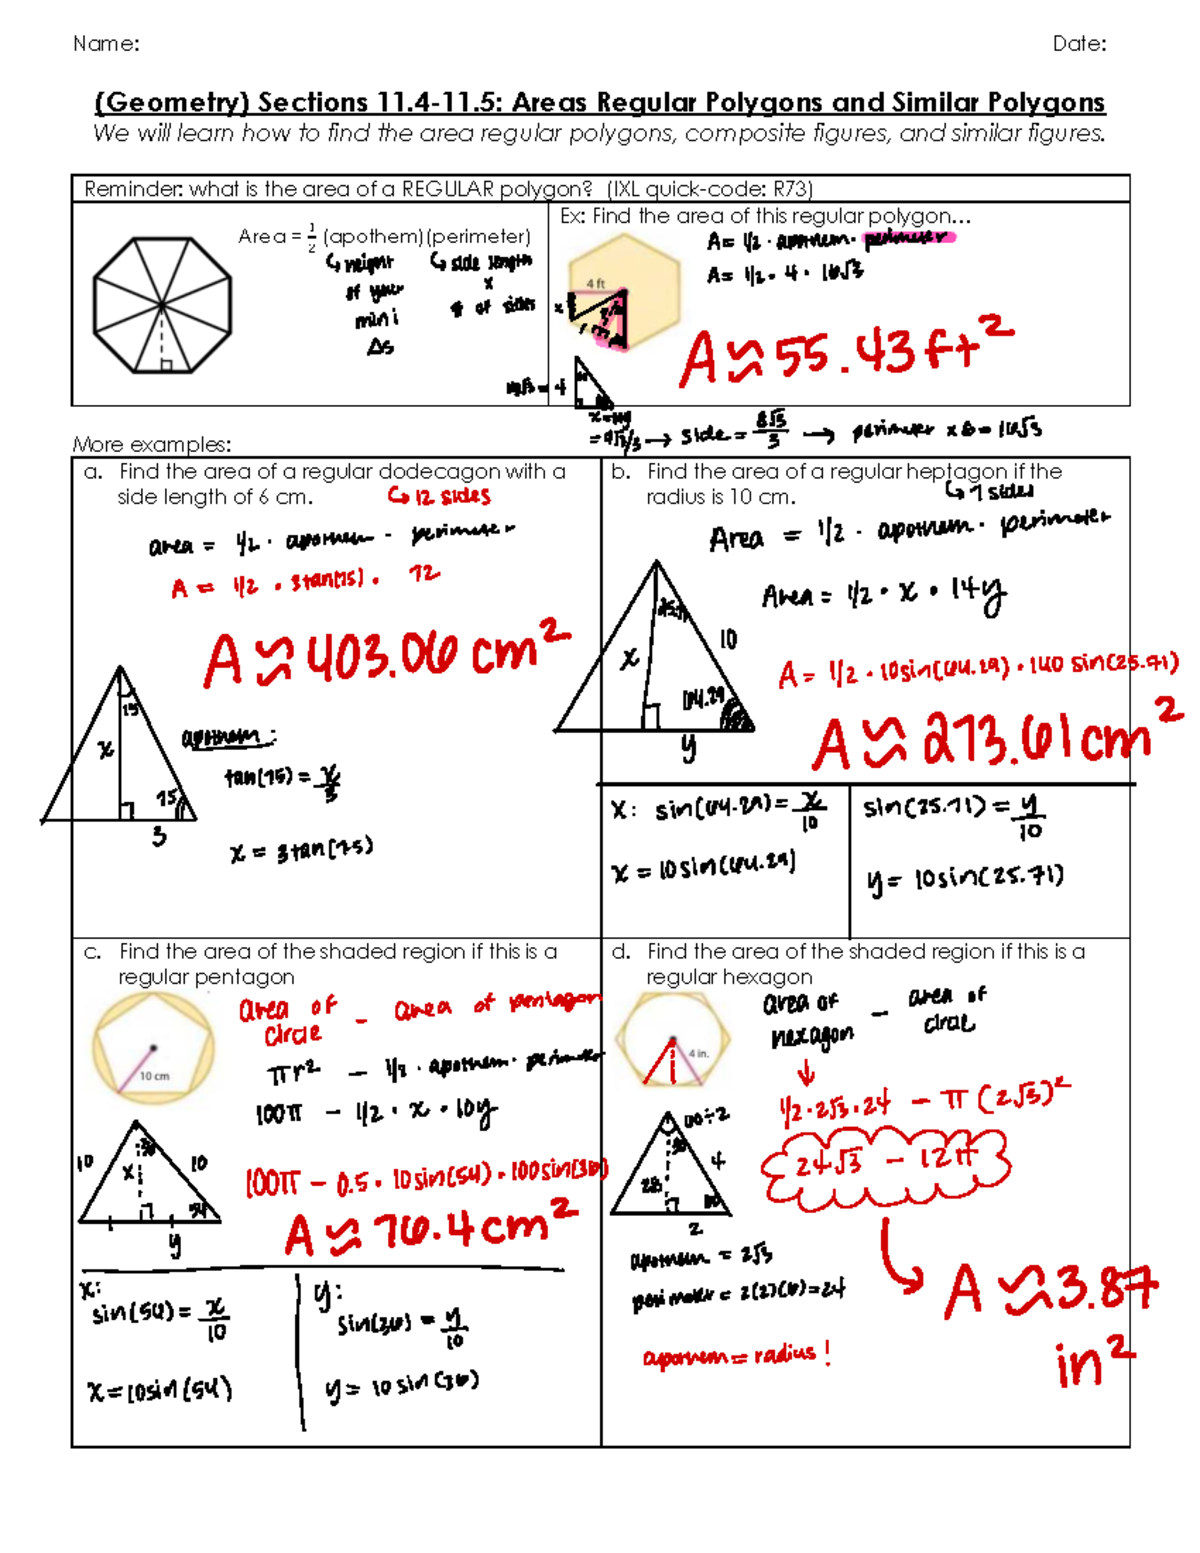 Name:
Date:
(Geometry) Sections 11.4-11.5: Areas Regular Polygons and Similar Polygons
We will learn how to find the area regular polygons, composite figures, and similar figures.
Reminder: what is the area of a REGULAR polygon? (IXL quick-code: R73)
Area = 1/2 (apothem)(perimeter)
↳ height of your mini Δs
↳ side length x # of sides
Ex: Find the area of this regular polygon...
A = 1/2 · apothem · perimeter
A = 1/2 · 4 · 16√3
4 ft
x
A ≈ 55.43 ft²
4
→ side = 8√3/3 → perimeter x 6 = 16√3
More examples:
a. Find the area of a regular dodecagon with a
side length of 6 cm.
↳ 12 sides
area = 1/2 · apothem · perimeter
A = 1/2 · 3tan(75) · 72
A ≈ 403.06 cm²
15
x
75
3
apothem:
tan(75) = x/3
x = 3tan(75)
b. Find the area of a regular heptagon if the
radius is 10 cm.
↳ 7 sides
Area = 1/2 · apothem · perimeter
Area = 1/2 · x · 14y
A = 1/2 · 10sin(64.29) · 140 sin(25.71)
A ≈ 273.61 cm²
25.71
10
x
64.29
y
x: sin(64.29) = x/10
x = 10sin(64.29)
sin(25.71) = y/10
y = 10sin(25.71)
c. Find the area of the shaded region if this is a
regular pentagon
10 cm
area of circle − area of pentagon
πr² − 1/2 · apothem · perimeter
100π − 1/2 · x · 10y
100π − 0.5 · 10sin(54) · 100sin(36)
A ≈ 76.4 cm²
10
36
10
x
54
y
x:
sin(54) = x/10
x = 10sin(54)
y:
sin(36) = y/10
y = 10sin(36)
d. Find the area of the shaded region if this is a
regular hexagon
4 in.
area of hexagon − area of circle
1/2 · 2√3 · 24 − π(2√3)²
24√3 − 12π
A ≈ 3.87 in²
60÷2
30
4
2√3
60
2
apothem = 2√3
perimeter = 2(2)(6) = 24
apothem = radius!